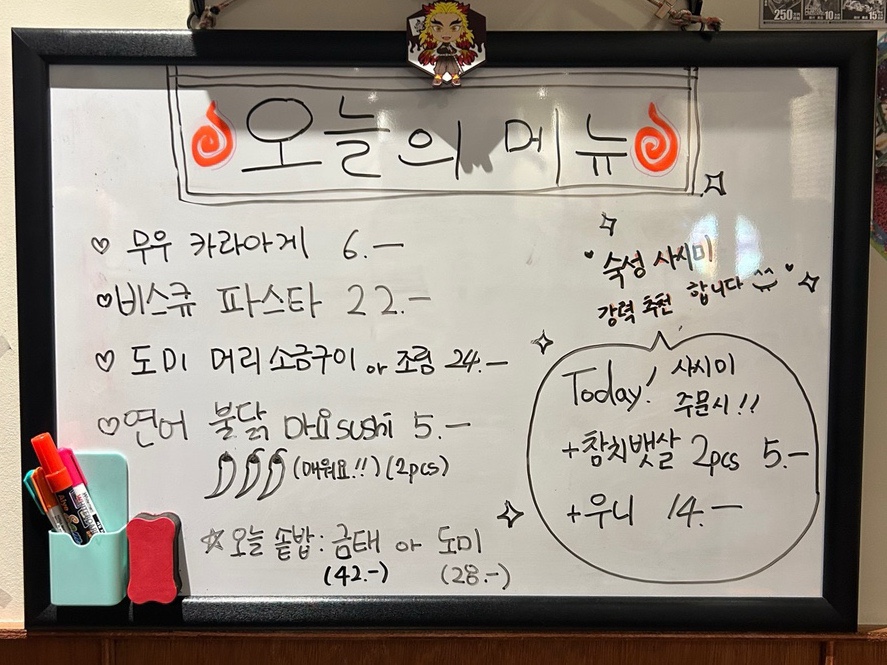 오늘의 메뉴
♡ 무우 카라아게 6.-
♡ 비스큐 파스타 22.-
♡ 도미 머리 소금구이 or 조림 24.-
♡ 연어 불닭 마요 sushi 5.-
(매워요!!) (2pcs)
☆ 오늘 솥밥: 금태 or 도미
(42.-) (28.-)
숙성 사시미
강력 추천 합니다
Today! 사시미
주문시!!
+참치뱃살 2pcs 5.-
+우니 14.-
250
10
15